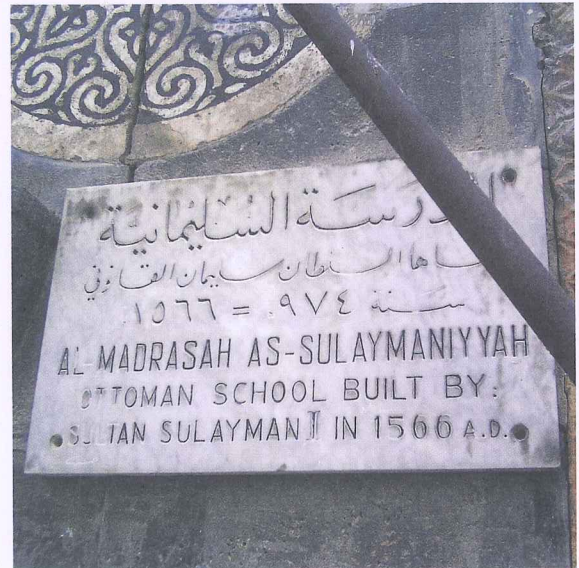 المدرسة السليمانية
بناها السلطان سليمان القانوني
سنة ٩٧٤ = ١٥٦٦
AL-MADRASAH AS-SULAYMANIYYAH
OTTOMAN SCHOOL BUILT BY:
SULTAN SULAYMAN II IN 1566 A.D.